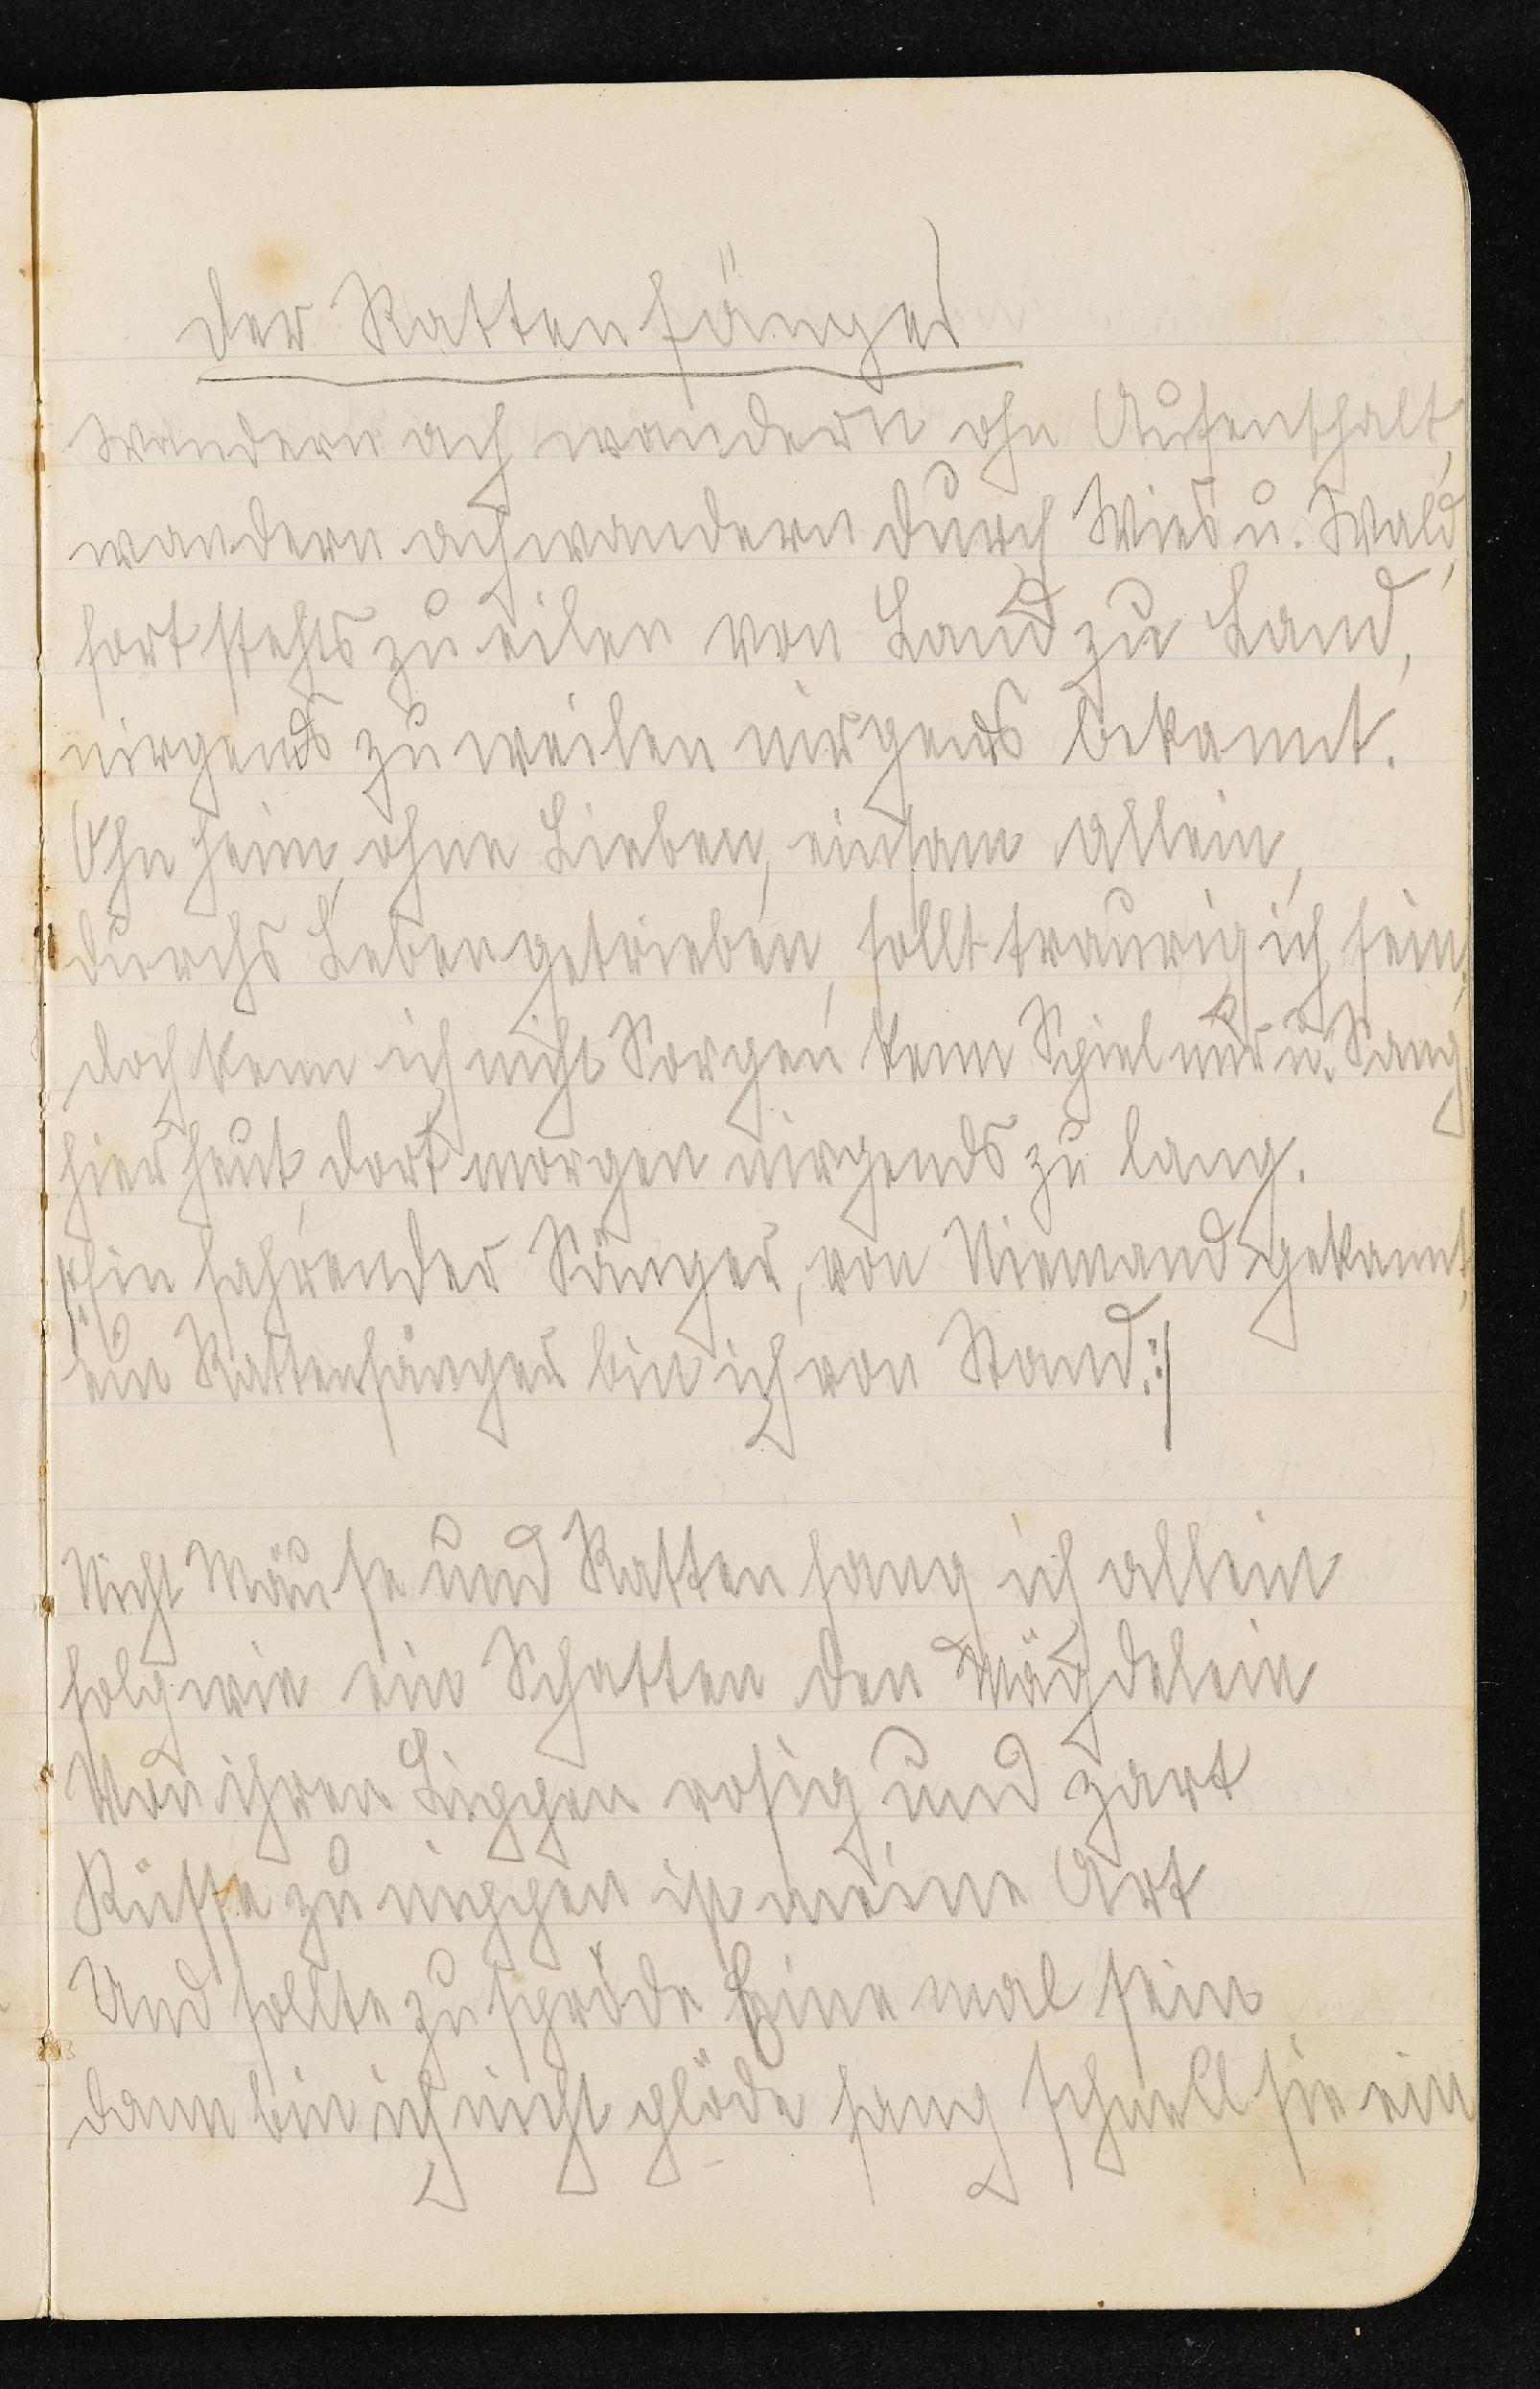 Der Rattenfänger
Wandern ach wandern ohn Aufenthalt,
wandern ach wandern durch Wies u. Wald,
fort stehts zu eilen von Land zu Land,
nirgends zu weilen nirgends bekannt.
Ohn heim, ohne Lieben, einsam allein,
durchs Leben getrieben, sollt traurig ich sein,
doch kenn ich nicht Sorgen kenn Spiel nur u. Sang
hier heut, dort morgen nirgends zu lang.
|: Ein fahrender Sänger, von Niemand gekannt,
ein Rattenfänger bin ich von Stand :|
Nicht Mäuse und Ratten fang ich allein
folg wie ein Schatten den Mägdelein
Von ihren Lippen rosig und zart
Küsse zu nippen ist meine Art
Und sollte zu spröde Eine mal sein
dann bin ich nicht plöde fang schnell sie ein